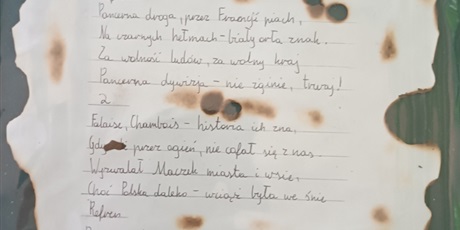 Pancerna droga, przez Francji piach,
Na czarnych hełmach - biały orła znak.
Za wolność ludów, za wolny kraj
Pancerna dywizja - nie zginie, trwaj!
2
Falaise, Chambois - historia ich zna,
przez ogień, nie cofał się z nas.
Wyzwalał Maczek miasta i wsie,
Choć Polska daleko - wciąż była we śnie
Refren